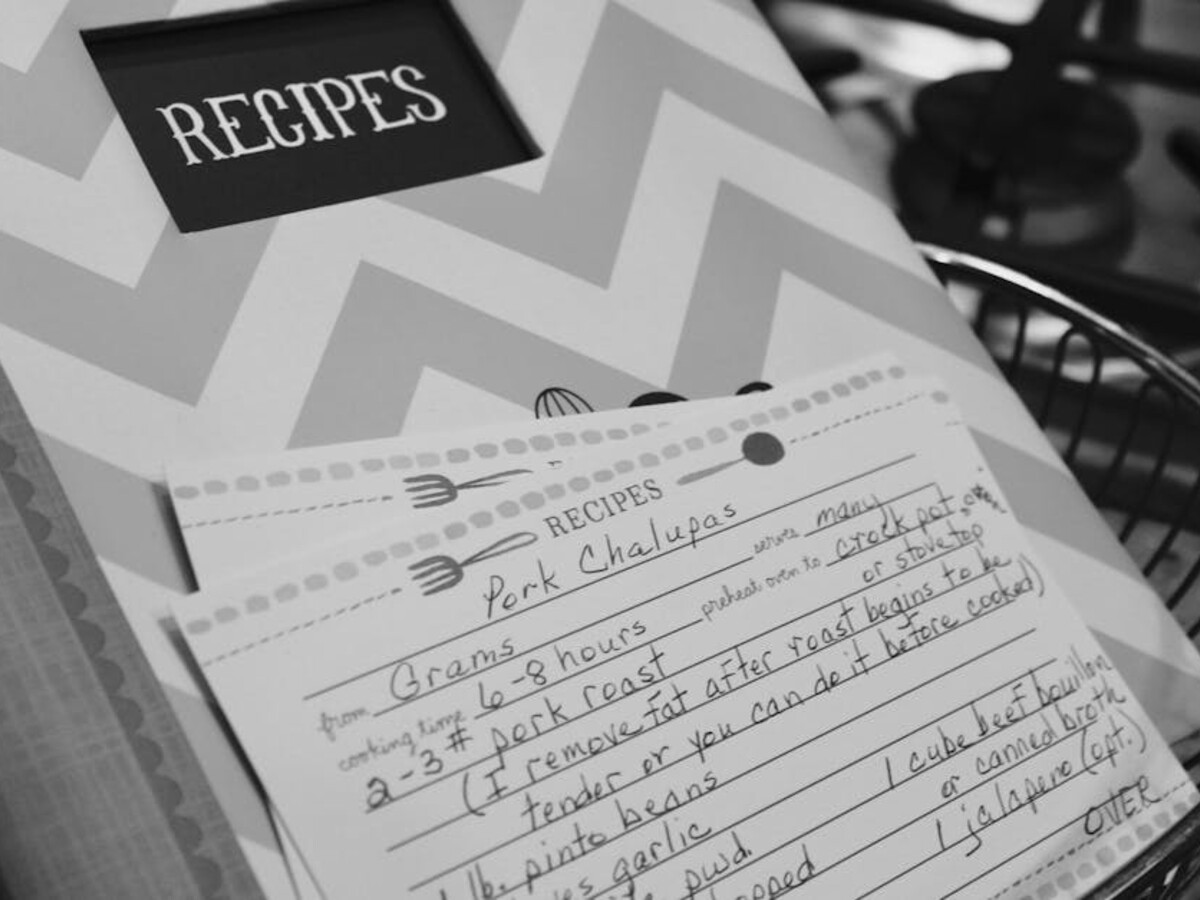 RECIPES
RECIPES
Pork Chalupas
from Grams serves many
cooking time 6-8 hours preheat oven to crock pot, oven
or stovetop
2-3# pork roast
(I remove fat after roast begins to be
tender or you can do it before cooked)
lb. pinto beans 1 cube beef bouillon
garlic or canned broth
pwd. 1 jalapeno (opt.)
OVER